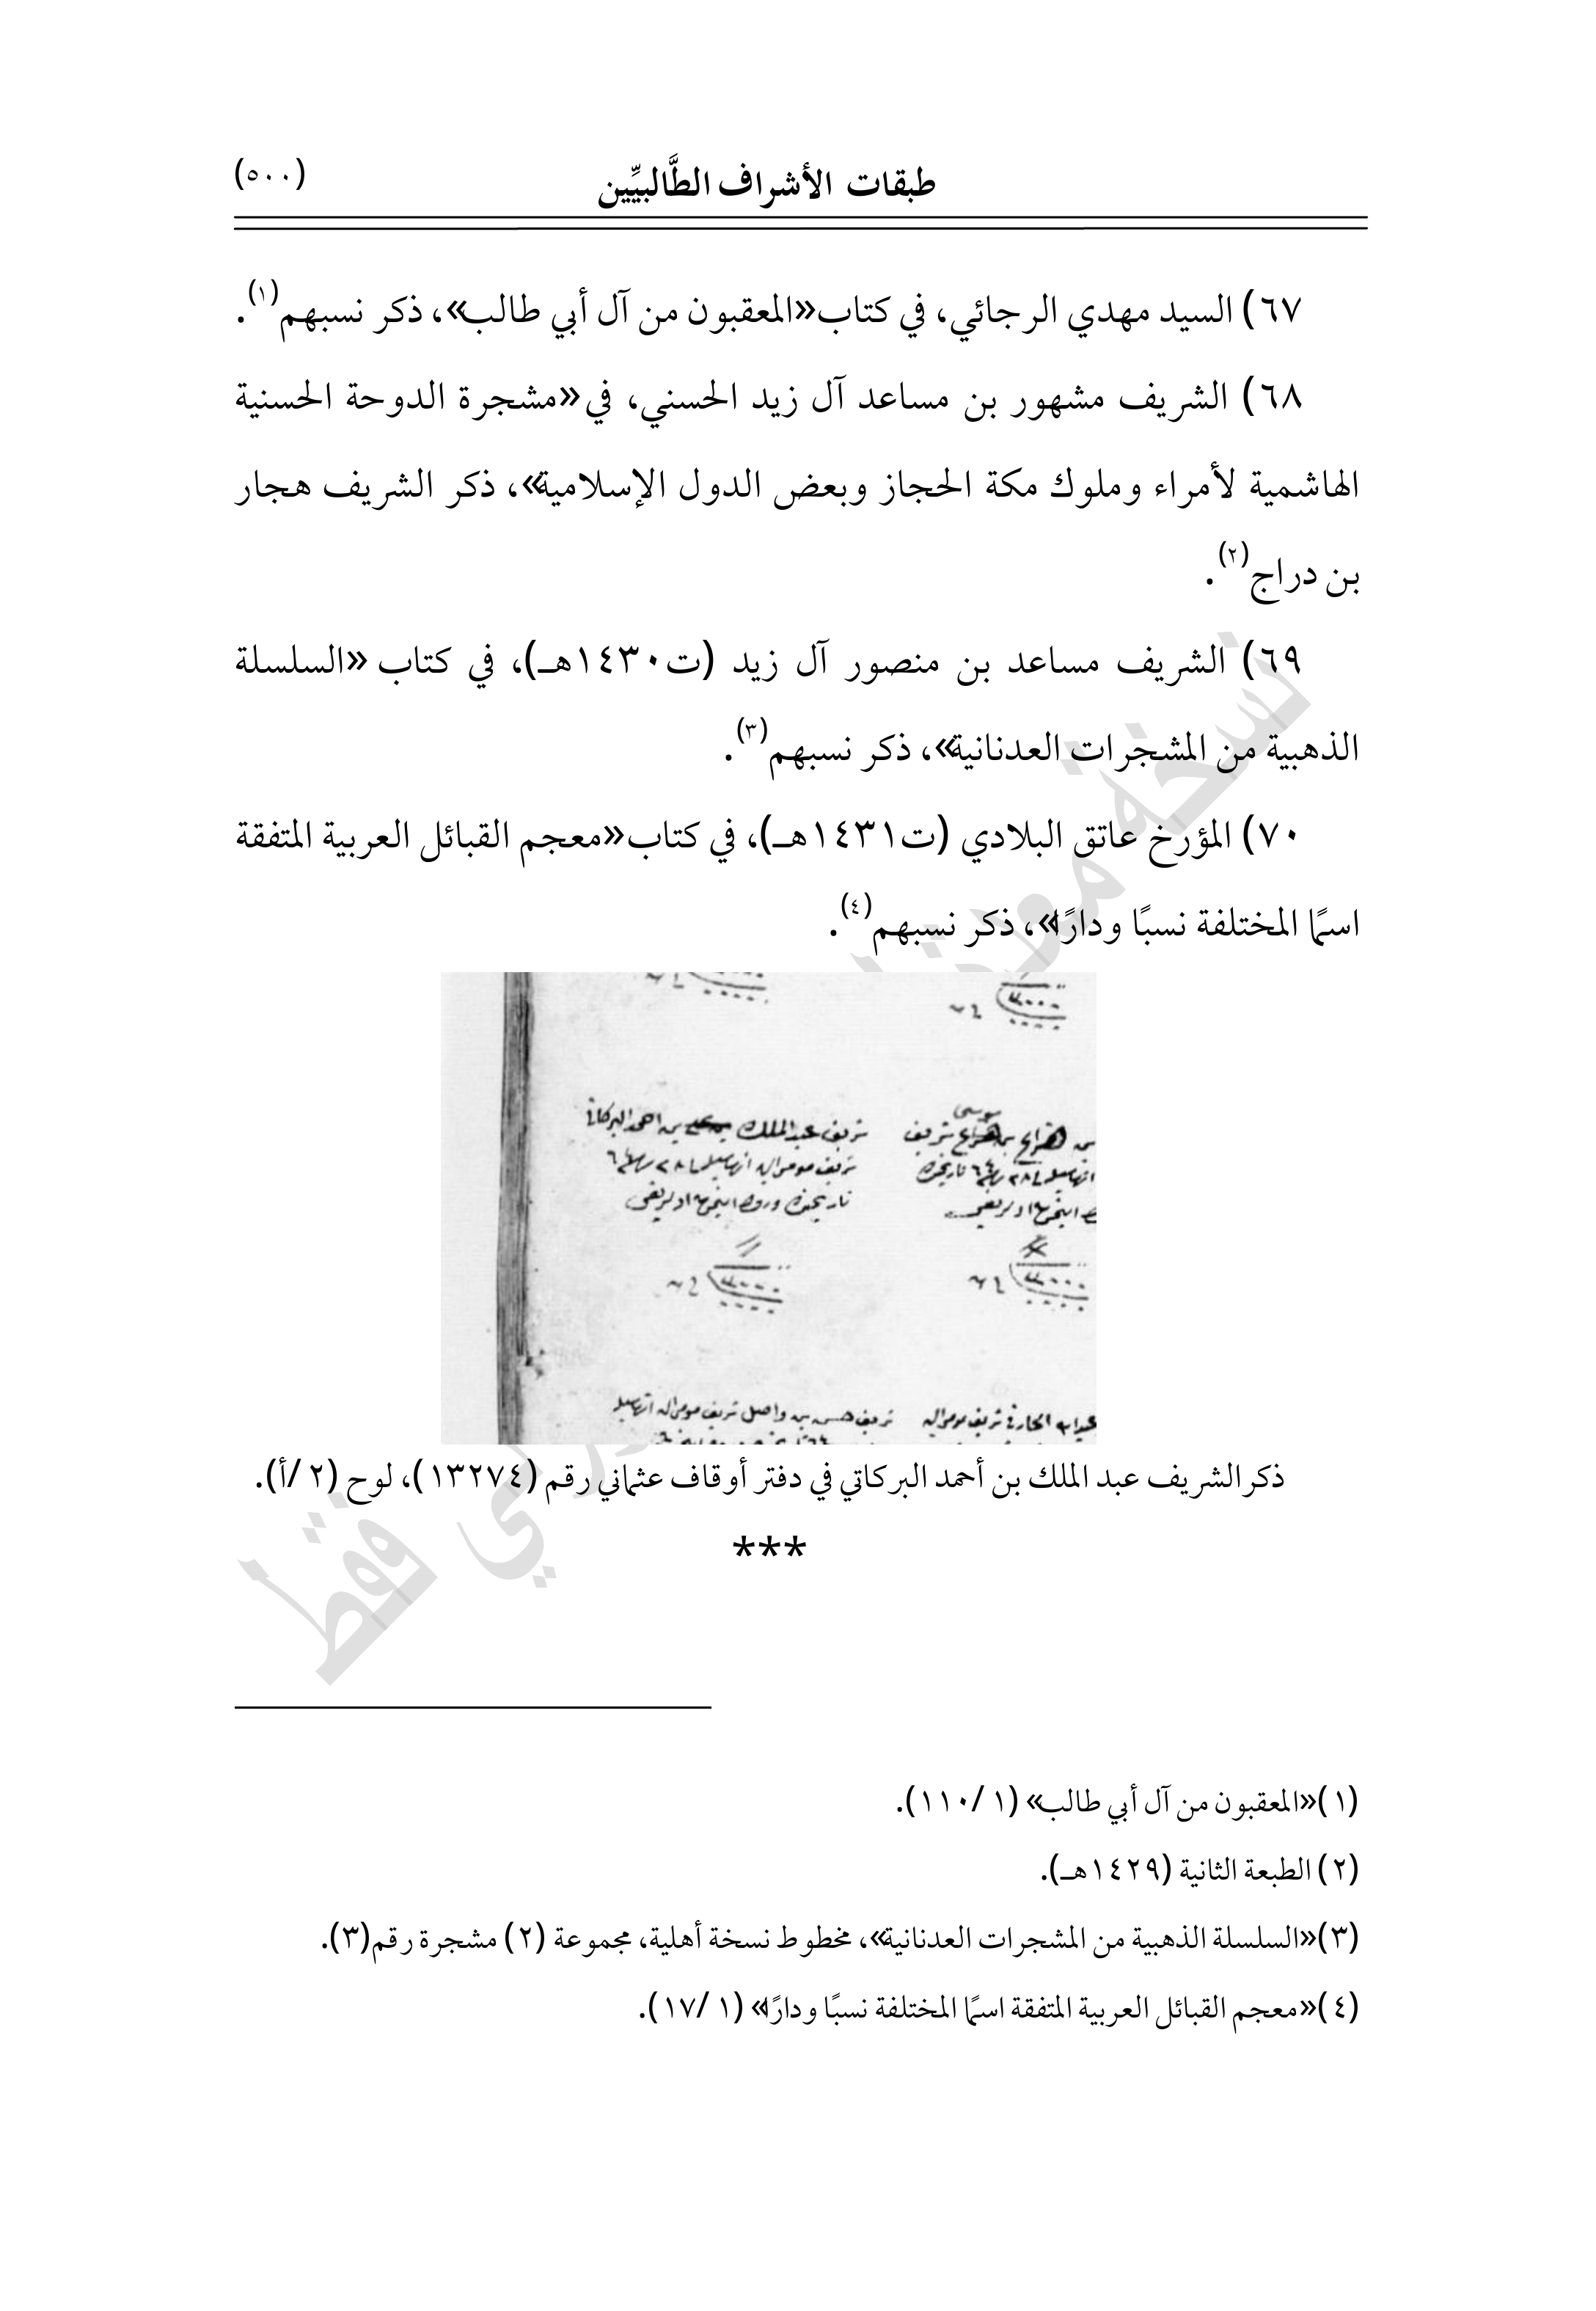 طبقات الأشراف الطَّالبيِّين
(٥٠٠)
٦٧) السيد مهدي الرجائي، في كتاب «المعقبون من آل أبي طالب»، ذكر نسبهم(١).
٦٨) الشريف مشهور بن مساعد آل زيد الحسني، في «مشجرة الدوحة الحسنية
الهاشمية لأمراء وملوك مكة الحجاز وبعض الدول الإسلامية»، ذكر الشريف هجار
بن دراج(٢).
٦٩) الشريف مساعد بن منصور آل زيد (ت١٤٣٠هـ)، في كتاب «السلسلة
الذهبية من المشجرات العدنانية»، ذكر نسبهم(٣).
٧٠) المؤرخ عاتق البلادي (ت١٤٣١هـ)، في كتاب «معجم القبائل العربية المتفقة
اسمًا المختلفة نسبًا ودارًا»، ذكر نسبهم(٤).
شريف عبد الملك بن احمد البركاتي
ذكر الشريف عبد الملك بن أحمد البركاتي في دفتر أوقاف عثماني رقم (١٣٢٧٤)، لوح (٢/أ).
***
(١) «المعقبون من آل أبي طالب» (١/١١٠).
(٢) الطبعة الثانية (١٤٢٩هـ).
(٣) «السلسلة الذهبية من المشجرات العدنانية»، مخطوط نسخة أهلية، مجموعة (٢) مشجرة رقم(٣).
(٤) «معجم القبائل العربية المتفقة اسمًا المختلفة نسبًا ودارًا» (١/١٧).